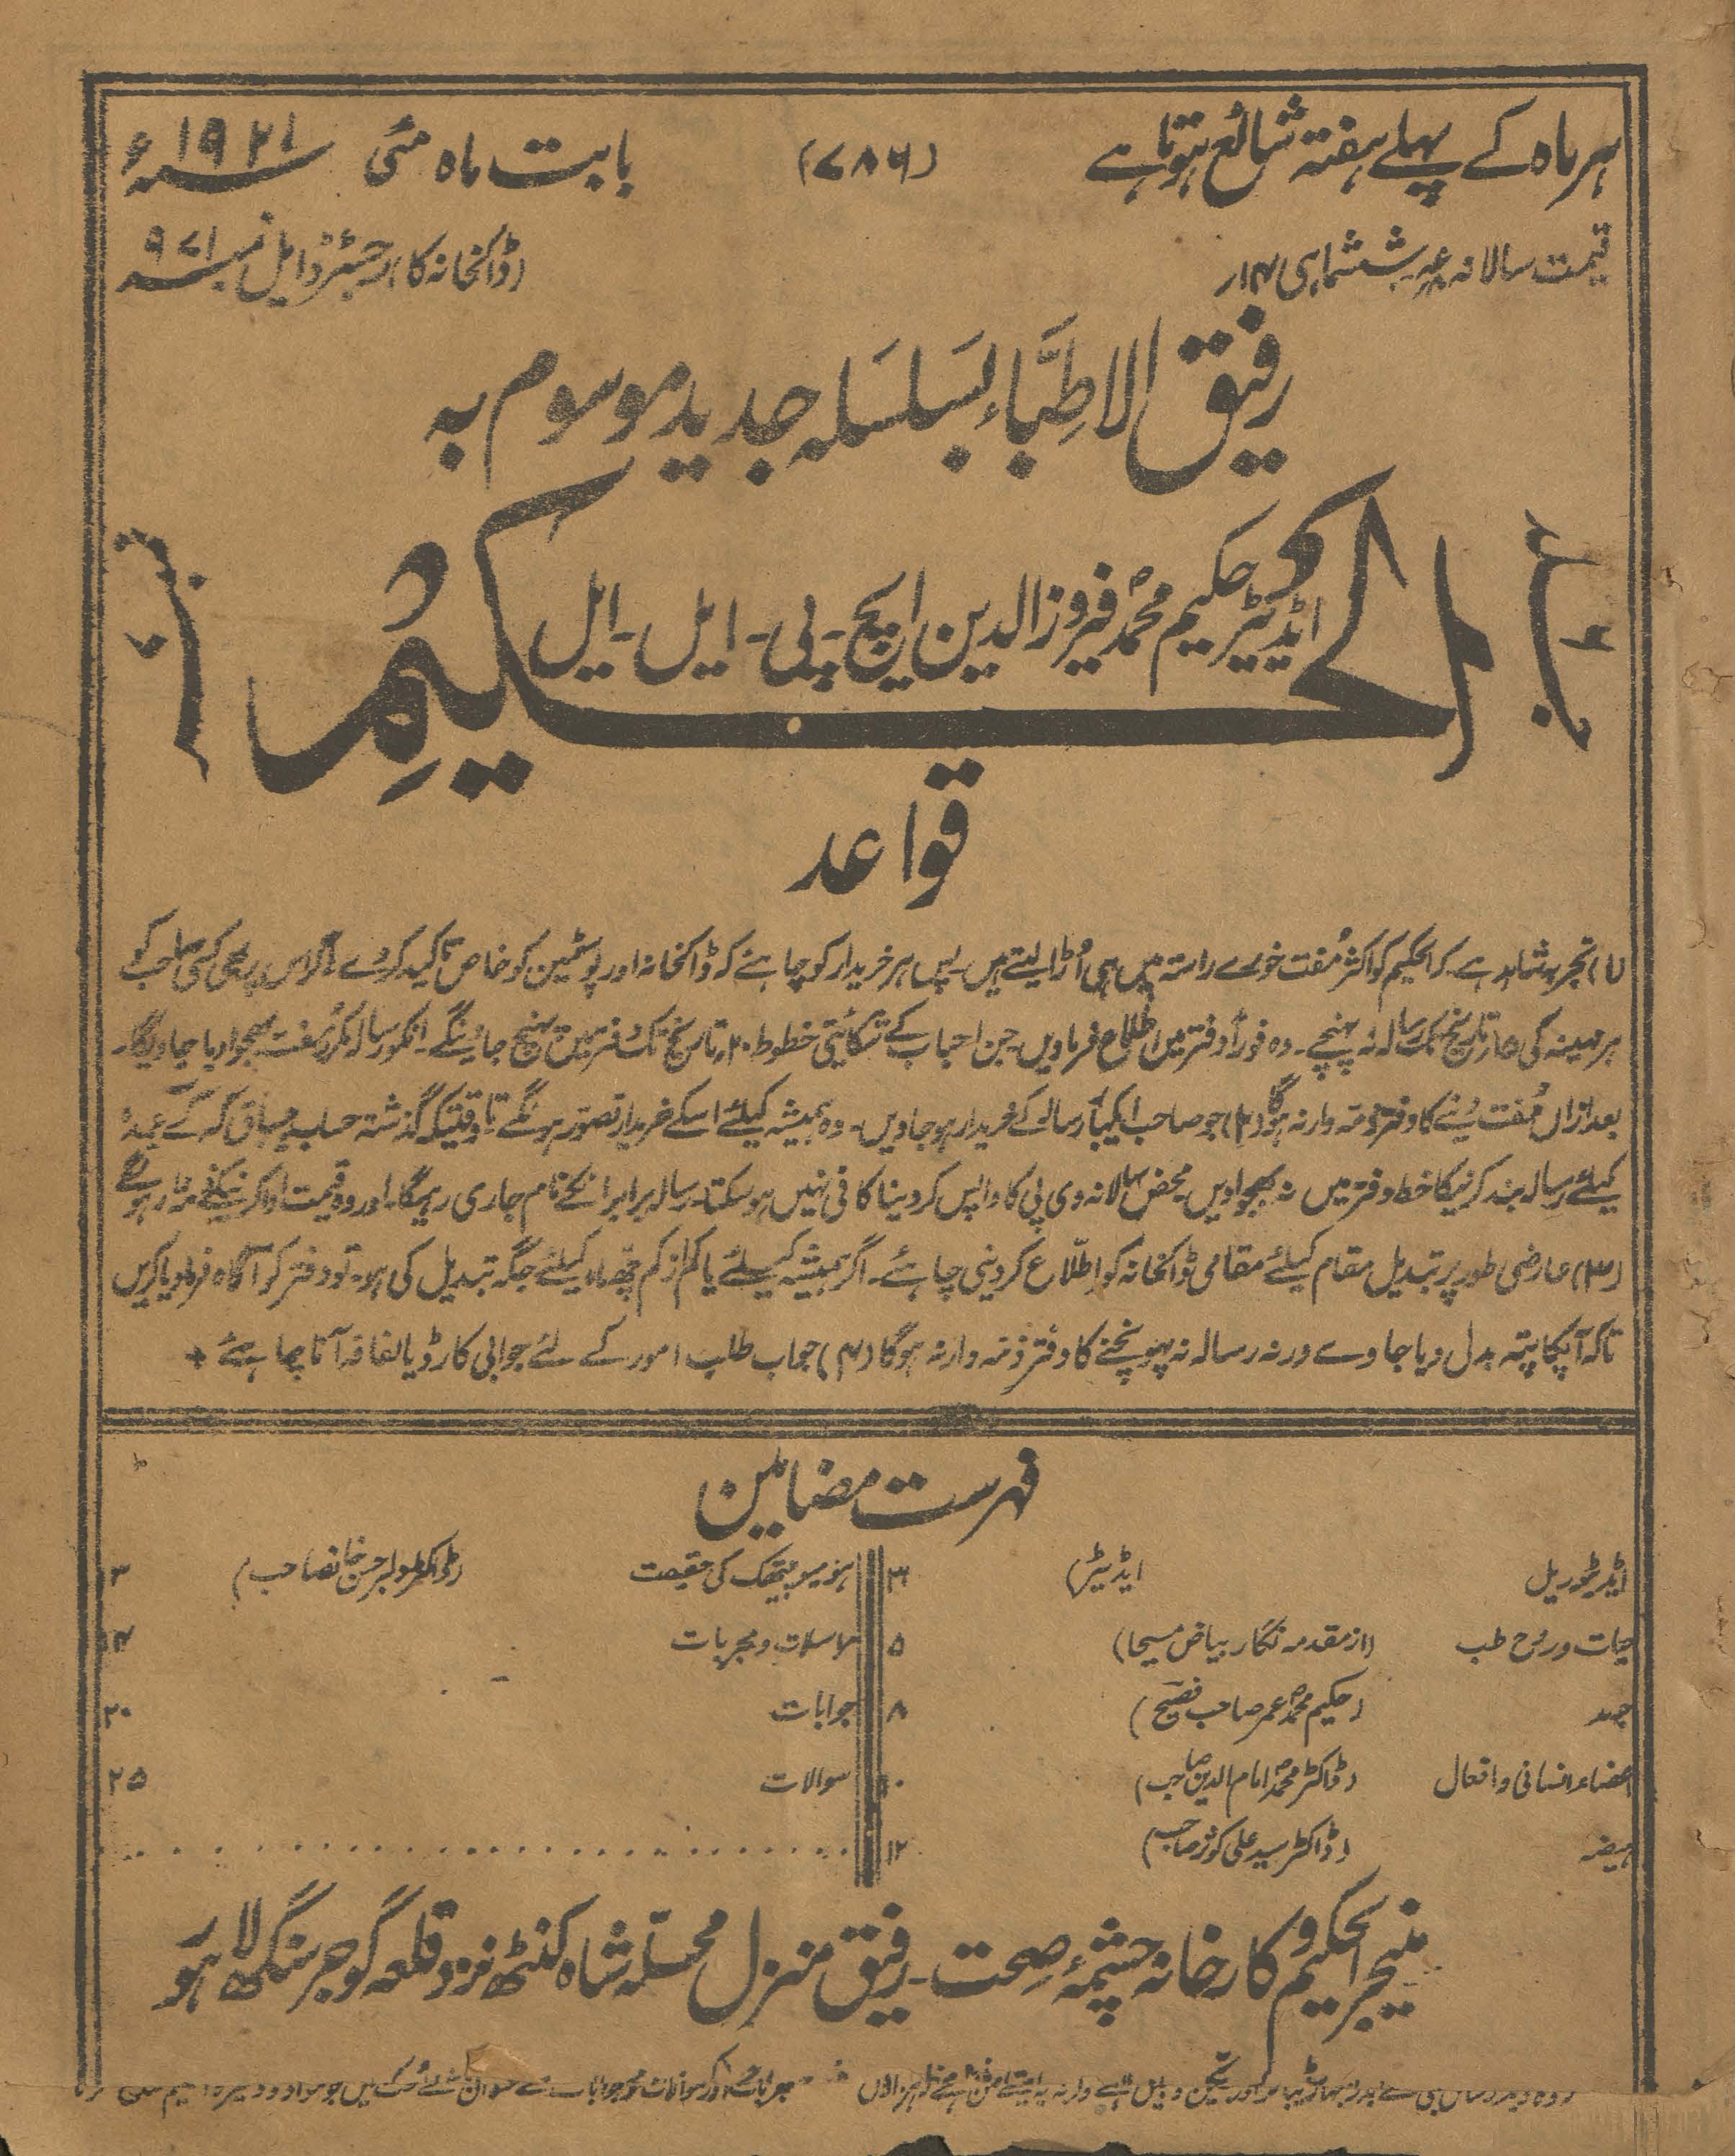 ہر ماہ کے پہلے ہفتہ شائع ہوتا ہے
(۷۸۶)
بابت ماہ مئی ۱۹۲۱ء
قیمت سالانہ ششماہی ۱۴ر
(ڈاکخانہ کا) رجسٹرڈ ایل نمبر ۹۷۱
رفیق الاطبّاء بسلسلہ جدید موسوم بہ
الحکیم
ایڈیٹر حکیم محمدؐ فیروز الدین ایچ - پی - ایل - ایل
قواعد
(۱) تجربہ شاہد ہے کہ الحکیم کو اکثر مُفت خورے راستہ میں ہی اُڑا لیتے ہیں پس ہر خریدار کو چاہئے کہ ڈاکخانہ اور پوسٹمین کو خاص تاکید کر دے اگر اس پر بھی کسی صاحب کو
ہر مہینہ کی تاریخ تک رسالہ نہ پہنچے۔ وہ فوراً دفتر میں اطلاع فرماویں جن احباب کے شکایتی خطوط ۲۰ تاریخ تک دفتر میں پہنچ جائینگے۔ انکو رسالہ مکرر مفت بھجوا دیا جاویگا۔
بعد ازاں مُفت دینے کا دفتر ذمہ وار نہ ہوگا (۲) جو صاحب ایکبار رسالہ کے خریدار ہو جاویں۔ وہ ہمیشہ کیلئے اسکے خریدار تصور ہونگے تاوقتیکہ گذشتہ حساب بیباق کر کے آیندہ
کیلئے رسالہ بند کرنیکا خط دفتر میں نہ بھجوا دیں محض سالانہ وی پی کا واپس کر دینا کافی نہیں ہو سکتا۔ رسالہ برابر انکے نام جاری رہیگا۔ اور وہ قیمت ادا کرنیکے ذمہ دار ہونگے
(۳) عارضی طور پر تبدیل مقام کیلئے مقامی ڈاکخانہ کو اطلاع کر دینی چاہئے۔ اگر ہمیشہ کیلئے یا کم از کم چھ ماہ کیلئے جگہ تبدیل کی ہو۔ تو دفتر کو آگاہ فرما دیا کریں
تاکہ آپکا پتہ بدل دیا جاوے ورنہ رسالہ نہ پہونچنے کا دفتر ذمہ وار نہ ہوگا (۴) جواب طلب امور کے لئے جوابی کارڈ یا لفافہ آنا چاہئے
فہرست مضامین
ایڈیٹوریل ایڈیٹر)
حیات و روح طب (از مقدمہ نگار بیاض مسیحا) ۵
جدہ (حکیم محمدؐ عمر صاحب فصیح) ۸
اعضاء انسانی و افعال (ڈاکٹر محمدؐ امام الدین صاحب) ۱۰
ہیضہ (ڈاکٹر سید علی کوثر صاحب) ۱۲
ہومیوپیتھک کی حقیقت
مراسلات و مجربات
جوابات ۲۰
سوالات ۲۵
منیجر الحکیم و کارخانہ چشمۂ صحت۔ رفیق منزل محلّہ شاہ کنٹھ نزد قلعہ گوجر سنگھ لاہور